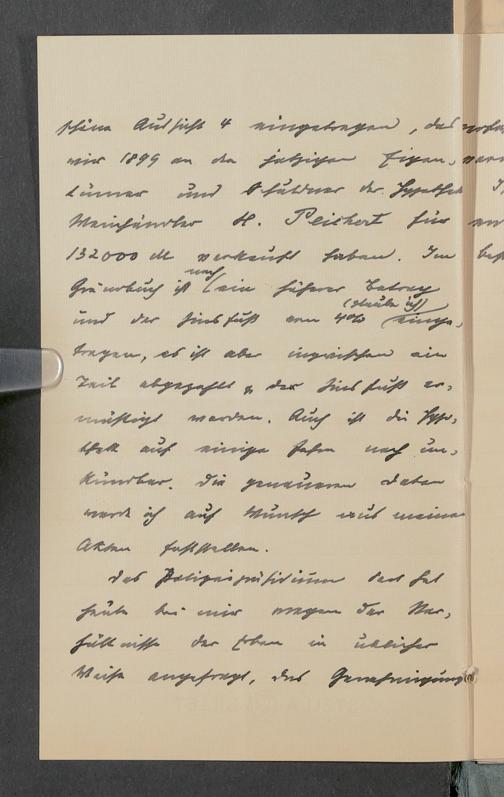 schöne Aussicht 4 eingetragen, das
wir 1899 an den jetzigen Eigen-
tümer und Schuldner der Hypothek
Weinhändler H. Reichert für
132000 M verkauft haben. Im
Grundbuch ist noch ein höherer Betrag
und der Zinsfuß von 4% (glaube ich) einge-
tragen, es ist aber inzwischen ein
Teil abgezahlt & der Zinsfuß er-
mäßigt worden. Auch ist die Hypo-
thek auf einige Jahre noch un-
kündbar. Die genaueren Daten
werde ich auf Wunsch aus meinen
Akten feststellen.
Das Polizeipräsidium dort hat
heute bei mir wegen der Ver-
hältnisse der Erben in üblicher
Weise angefragt, das Genehmigungs